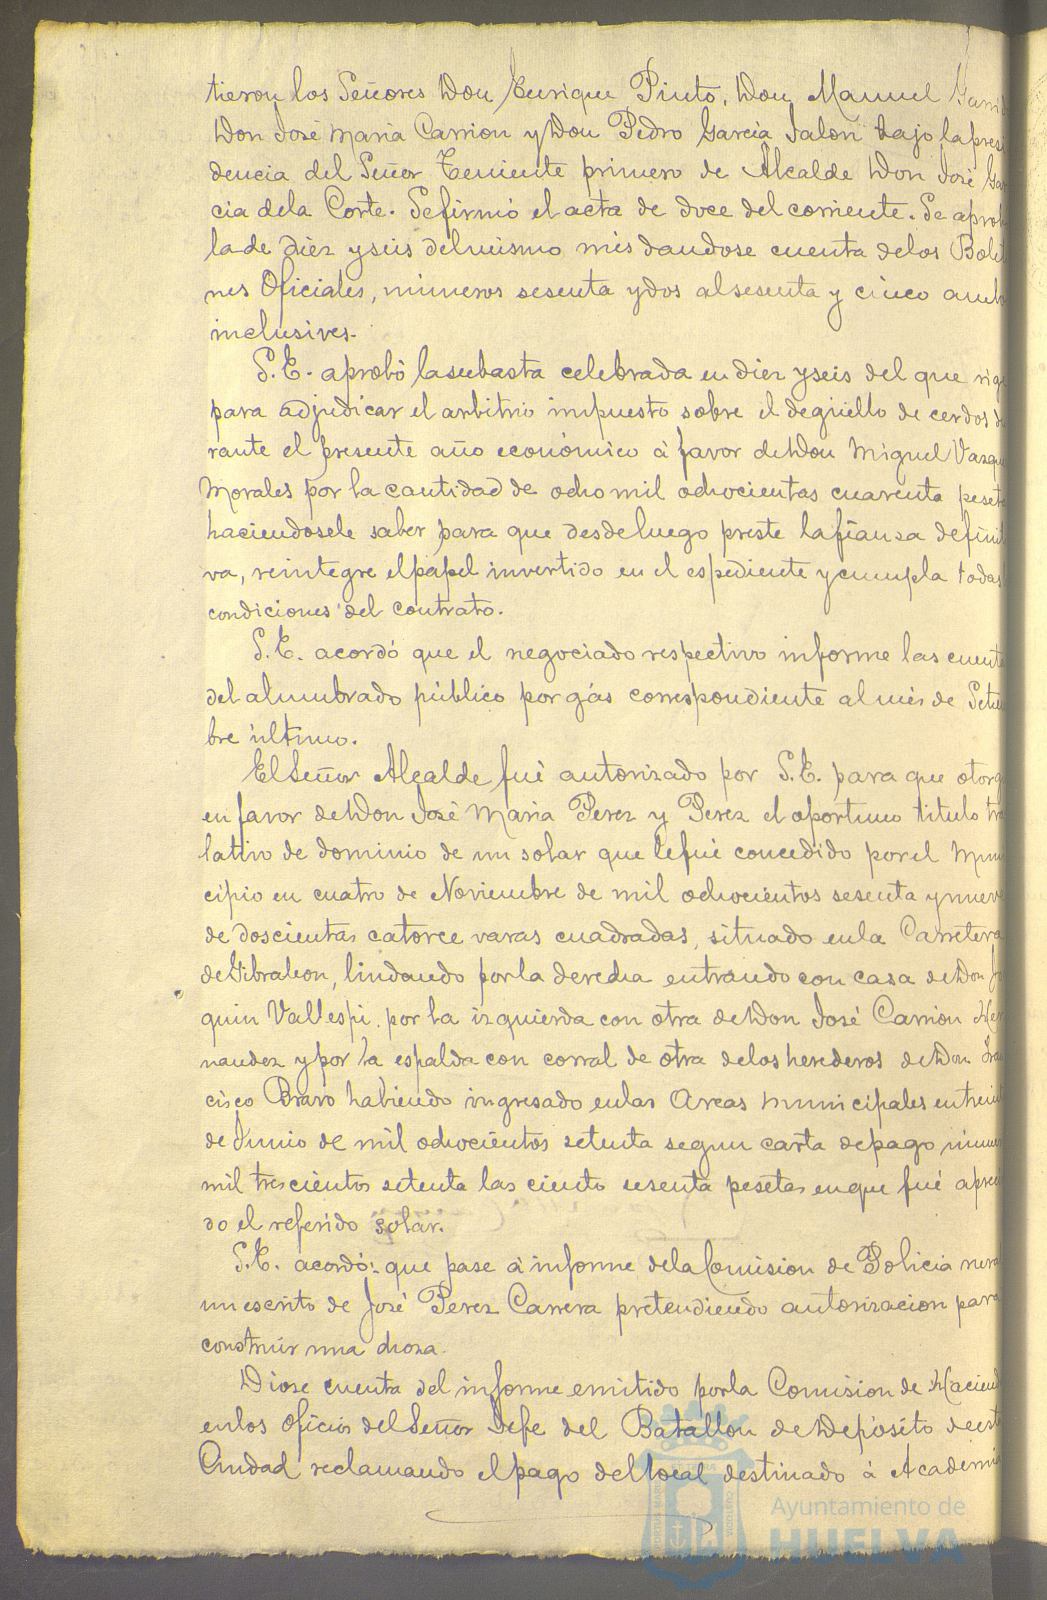 tieron los Señores Don Enrique Pinto, Don Manuel Garrid
Don José Maria Carrion y Don Pedro Garcia Jalon bajo la presi
dencia del Señor Teniente primero de Alcalde Don José Gar
cia dela Corte. Se firmó el acta de doce del corriente. Se aprob
la de diez y seis del mismo mes dandose cuenta delos Boleti
nes Oficiales, números sesenta y dos al sesenta y cinco amb
inclusives.
S.E. aprobó la subasta celebrada en diez y seis del que rige
para adjudicar el arbitrio impuesto sobre el degüello de cerdos du
rante el presente año económico á favor de Don Miguel Vazqu
Morales por la cantidad de ocho mil ochocientas cuarenta peset
haciendosele saber para que desdeluego preste la fianza definit
va, reintegre el papel invertido en el espediente y cumpla todas
condiciones del contrato.
S.E. acordó que el negociado respectivo informe las cuenta
del alumbrado público por gás correspondiente al mes de Setie
bre último.
El Señor Alcalde fué autorizado por S.E. para que otorg
en favor de Don José Maria Perez y Perez el oportuno titulo tra
lativo de dominio de un solar que le fué concedido por el Muni
cipio en cuatro de Noviembre de mil ochocientos sesenta y nueve
de doscientas catorce varas cuadradas, situado en la Carretera
de Gibraleon, lindando por la derecha entrando con casa de Don Jo
quin Vallespi. por la izquierda con otra de Don José Carrion Her
nandez y por la espalda con corral de otra delos herederos de Don Fran
cisco Bravo habiendo ingresado en las Arcas Municipales en treint
de Junio de mil ochocientos setenta segun carta de pago númer
mil trescientos setenta las ciento sesenta pesetas en que fué aprecia
do el referido solar.
S.E. acordó: que pase á informe dela Comision de Policia rural
un escrito de José Perez Carrera pretendiendo autorizacion para
construir una choza.
Diose cuenta del informe emitido por la Comision de Haciend
en los oficios del Señor Jefe del Batallon de Depósito de est
Ciudad reclamando el pago del local destinado á Academia
Ayuntamiento de
HUELVA